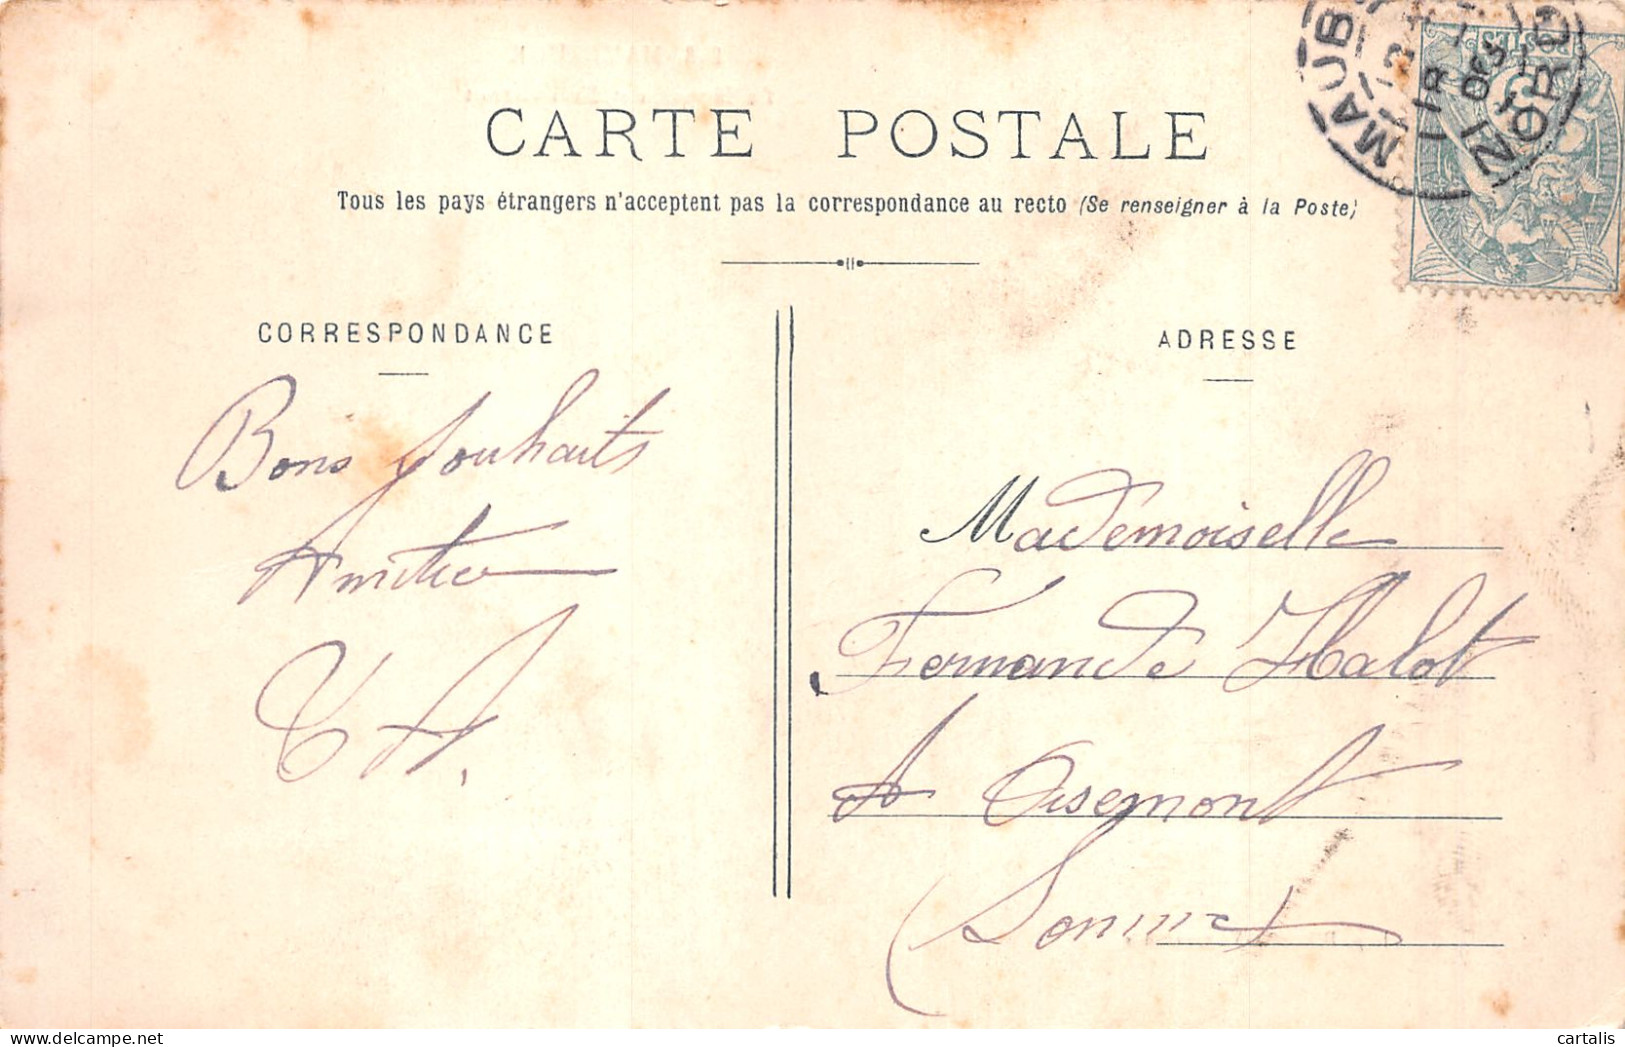 CARTE POSTALE
Tous les pays étrangers n'acceptent pas la correspondance au recto (Se renseigner à la Poste)
CORRESPONDANCE
Bons souhaits
Amitié
ADRESSE
Mademoiselle
Fernande Halot
A Oisemont
Somme
MAUB
NORD
cartalis
www.delcampe.net